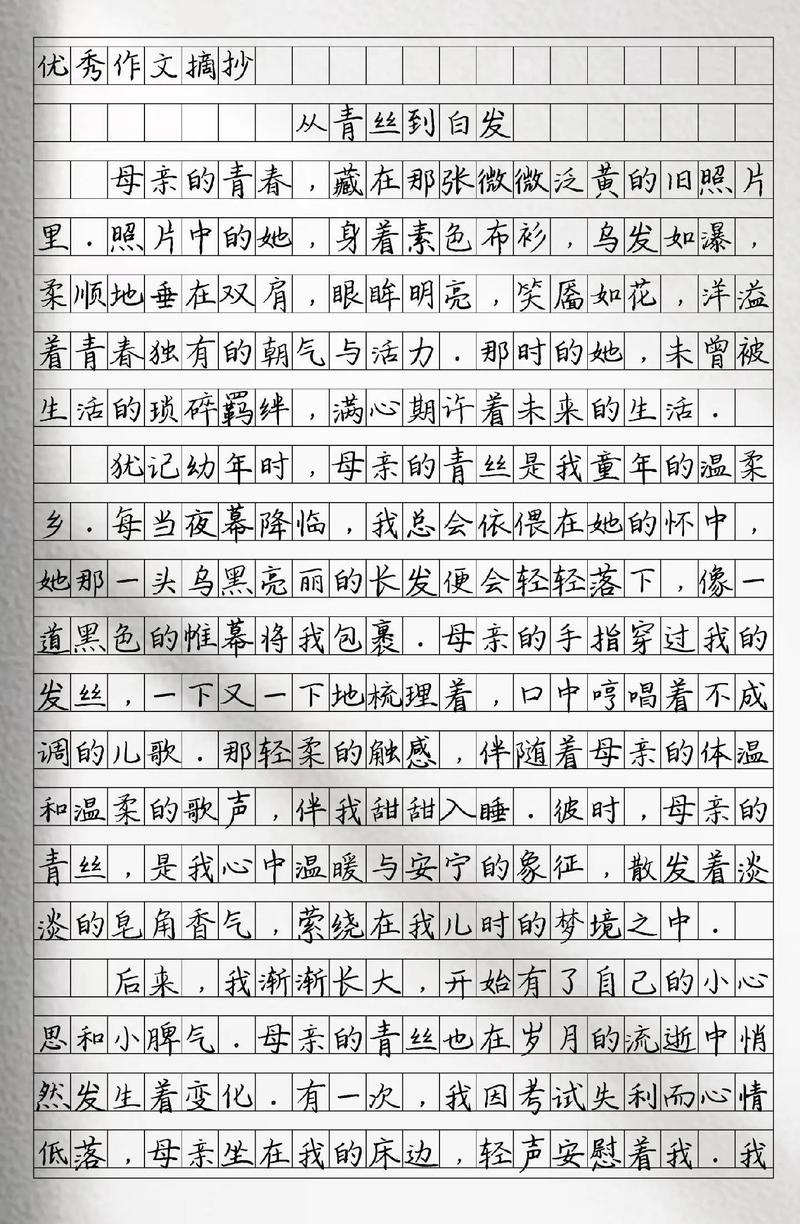 优秀作文摘抄
从青丝到白发
母亲的青春，藏在那张微微泛黄的旧照片
里．照片中的她，身着素色布衫，乌发如瀑，
柔顺地垂在双肩，眼眸明亮，笑靥如花，洋溢
着青春独有的朝气与活力．那时的她，未曾被
生活的琐碎羁绊，满心期许着未来的生活．
犹记幼年时，母亲的青丝是我童年的温柔
乡．每当夜幕降临，我总会依偎在她的怀中，
她那一头乌黑亮丽的长发便会轻轻落下，像一
道黑色的帷幕将我包裹．母亲的手指穿过我的
发丝，一下又一下地梳理着，口中哼唱着不成
调的儿歌．那轻柔的触感，伴随着母亲的体温
和温柔的歌声，伴我甜甜入睡．彼时，母亲的
青丝，是我心中温暖与安宁的象征，散发着淡
淡的皂角香气，萦绕在我儿时的梦境之中．
后来，我渐渐长大，开始有了自己的小心
思和小脾气．母亲的青丝也在岁月的流逝中悄
然发生着变化．有一次，我因考试失利而心情
低落，母亲坐在我的床边，轻声安慰着我．我